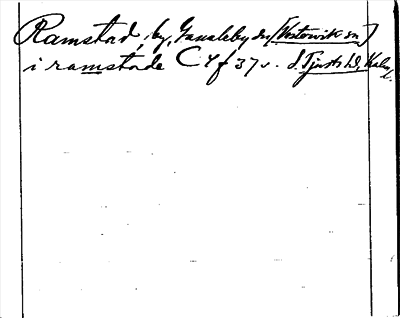 Ramstad, by, Gamleby sn [Westervik sn]
i ramstade C 4 f 37 v. S. Tjusts hd, Kalm. l.